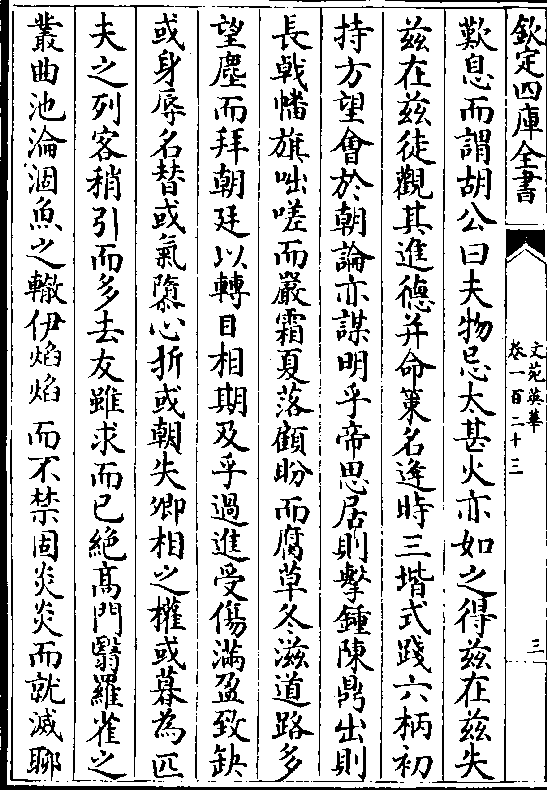 欽定四庫全書
文苑英華
卷一百二十三
三
歎息而謂胡公曰夫物忌太甚火亦如之得兹在兹失
兹在兹徒觀其進德并命策名逢時三堦式踐六柄初
持方望會於朝論亦謀明乎帝思居則擊鍾陳鼎出則
長戟幡旗咄嗟而嚴霜夏落顧盼而腐草冬滋道路多
望塵而拜朝廷以轉目相期及乎過進受傷滿盈致缺
或身辱名替或氣隳心折或朝失卿相之權或暮為匹
夫之列客稍引而多去友雖求而已絶髙門翳羅雀之
叢曲池淪涸魚之轍伊焰焰而不禁固炎炎而就滅聊